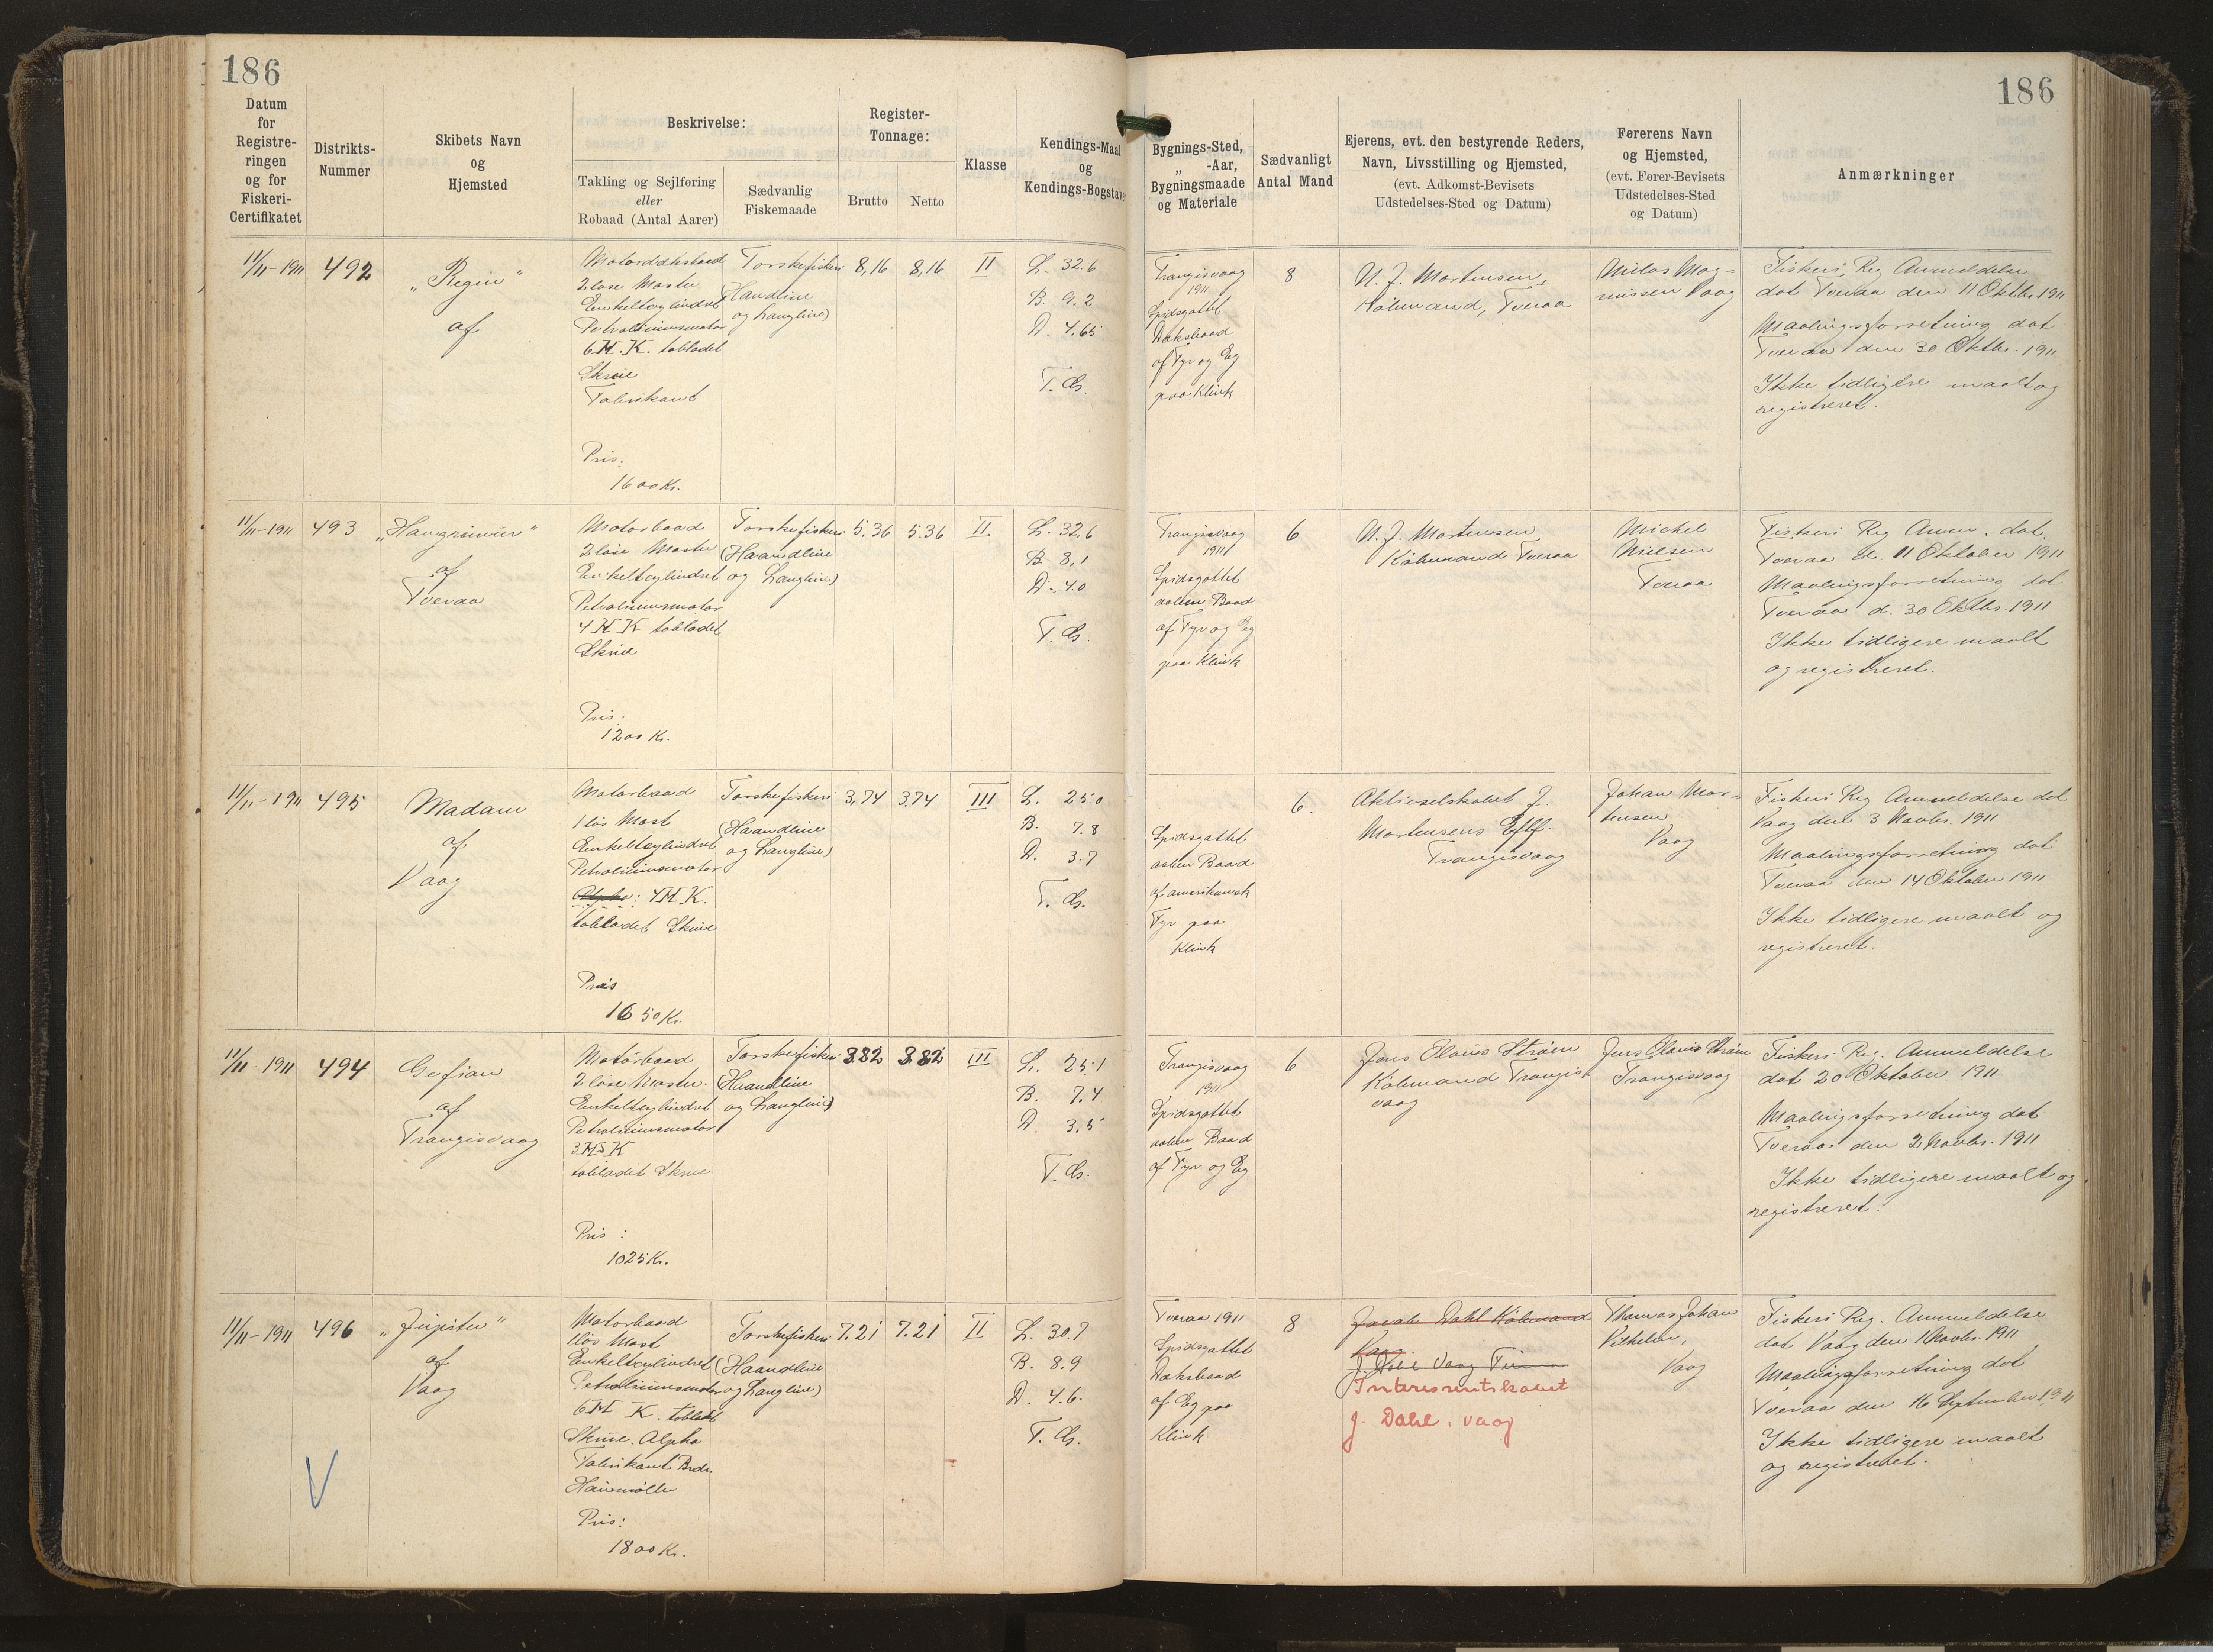 186
186
Datum
for
Registre-
ringen
og for
Fiskeri-
Certifikatet
Distrikts-
Nummer
Skibets Navn
og
Hjemsted
Beskrivelse:
Takling og Sejlføring
eller
Robaad (Antal Aarer)
Sædvanlig
Fiskemaade
Register-
Tonnage:
Brutto
Netto
Klasse
Kendings-Maal
og
Kendings-Bogstaver
Bygnings-Sted,
„ -Aar,
Bygningsmaade
og Materiale
Sædvanligt
Antal Mand
Ejerens, evt. den bestyrende Reders,
Navn, Livsstilling og Hjemsted,
(evt. Adkomst-Bevisets
Udstedelses-Sted og Datum)
Førerens Navn
og Hjemsted,
(evt. Fører-Bevisets
Udstedelses-Sted
og Datum)
Anmærkninger
11/11-1911
492
„Regin"
af
Motordæksbaad
2 løse Master
Enkeltcylindret
Petroliumsmotor
6 H.K. tobladet
Skrue
Fabrikant
Pris:
1600 Kr.
Torskefiskeri
(Haandline
og Langline)
8,16
8,16
II
L. 32.6
B. 9.2
D. 4.65
T. G.
Trangisvaag
1911
Spidsgattet
Dæksbaad
af Fyr og Eg
paa Klink
8
N. J. Mortensen,
Købmand, Tveraa
Niclas Mag-
nussen Vaag
Fiskeri Reg Anmeldelse
dat Tveraa den 11 Oktbr. 1911
Maalingsforretning dat
Tveraa den 30 Oktbr. 1911
Ikke tidligere maalt og
registreret.
11/11-1911
493
„Havgrimur"
af
Tveraa
Motorbaad
2 løse Master
Enkeltcylindret
Petroliumsmotor
4 H K tobladet
Skrue
Pris:
1200 Kr.
Torskefiskeri
(Haandline
og Langline)
5.36
5.36
II
L. 32,6
B. 8,1
D. 4.0
T. G.
Trangisvaag
1911
Spidsgattet
aaben Baad
af Fyr og Eg
paa Klink
6
N. J. Mortensen
Købmand Tveraa
Michel
Nielsen
Tveraa
Fiskeri Reg Anm. dat.
Tveraa d. 11 Oktober 1911
Maalingsforretning dat
Tveraa d. 30 Oktbr. 1911
Ikke tidligere maalt
og registreret.
11/11-1911
495
Madam
af
Vaag
Motorbaad
1 løs Mast
Enkeltcylindret
Petroliumsmotor
Alpha: 4 H.K.
tobladet Skrue
Pris
1650 Kr.
Torskefiskeri
(Haandline
og Langline)
3,74
3.74
III
L. 25.0
B. 7.8
D. 3.7
T. G.
Spidsgattet
aaben Baad
af amerikansk
Fyr paa
Klink
6.
Aktieselskabet J.
Mortensens Eftf.
Trangisvaag
Johan Mor-
tensen
Vaag
Fiskeri Reg Anmeldelse dat
Vaag den 3 Novbr. 1911
Maalingsforretning dat
Tveraa den 14 Oktober 1911
Ikke tidligere maalt og
registreret.
11/11-1911
494
Gefion
af
Trangisvaag
Motorbaad
2 løse Master.
Enkeltcylindret
Petroliumsmotor
3 H K
tobladet Skrue
Pris:
1025 Kr.
Torskefiskeri
(Haandline
og Langline)
3.82
3.82
III
L. 25.1
B. 7.4
D. 3.5
T. G.
Trangisvaag
1911
Spidsgattet
aaben Baad
af Fyr og Eg
6
Jens Olavus Strøm
Købmand Trangis
vaag
Jens Olavus Strøm
Trangisvaag
Fiskeri Reg. Anmeldelse
dat 20 Oktober 1911
Maalingsforretning dat
Tveraa den 2 Novbr. 1911
Ikke tidligere maalt og
registreret.
11/11-1911
496
„Jupiter"
af
Vaag
Motorbaad
1 løs Mast
Enkeltcylindret
Petroliumsmotor
6 H K. tobladet
Skrue. Alpha
Fabrikant Brdr.
Houmøller
Pris:
1800 Kr.
Torskefiskeri
(Haandline
og Langline)
7.21
7.21
II
L. 30.7
B. 8.9
D. 4.6.
T. G.
Tveraa 1911
Spidsgattet
Dæksbaad
af Eg paa
Klink
8
Jacob Dahl Købmand
Vaag.
J. Dahl Vaag Firma
Interessentskabet
J. Dahl, Vaag
Thomas Johan
Vilhelm,
Vaag
Fiskeri Reg. Anmeldelse
dat Vaag den 1 Novbr. 1911
Maalingsforretning dat
Tveraa den 16 September 1911
Ikke tidligere maalt
og registreret.